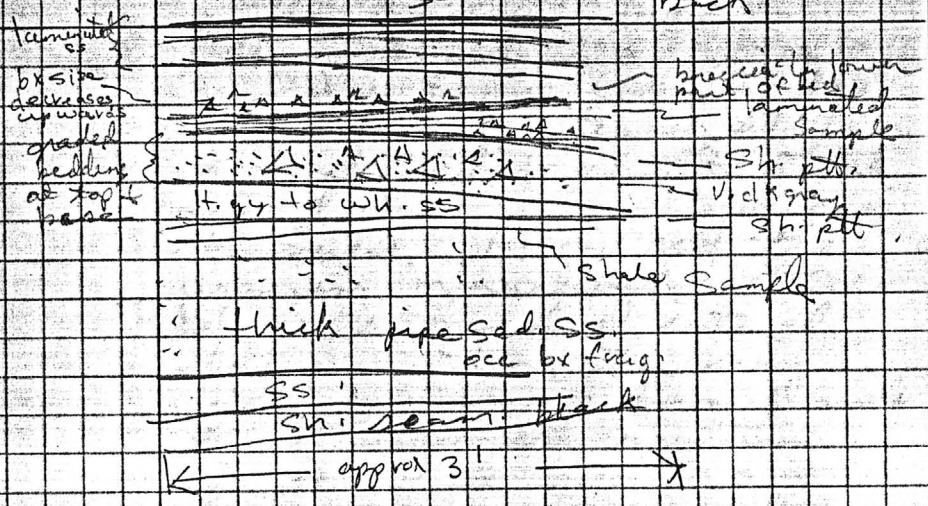 laminated
ss
bx size
decreases
upwards
graded
bedding
at top +
base
breccia in lower
part of bed
laminated
Sample
Sh. ptt.
V. dk gray
Sh. ptt.
lt. gy to wh. ss
Shale Sample
thick pipe sed. ss.
occ bx frag.
ss
sh. seam. black
approx 3'